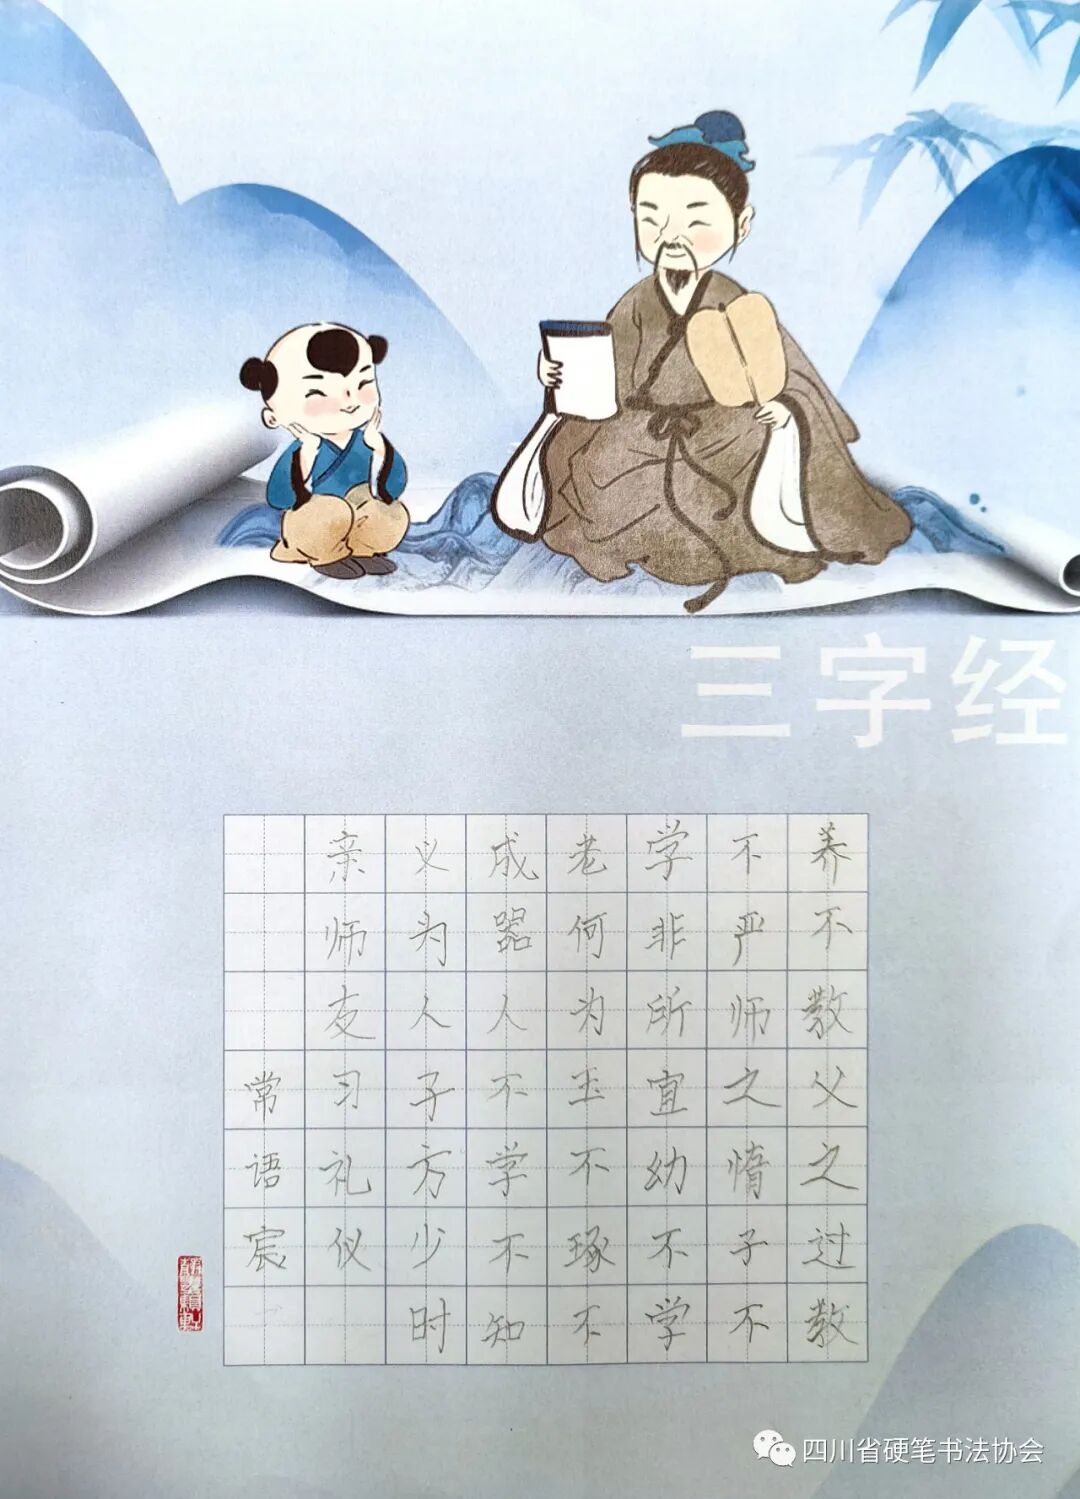 三字经
养不教父之过教
不严师之惰子不
学非所宜幼不学
老何为玉不琢不
成器人不学不知
义为人子方少时
亲师友习礼仪
常语宸
四川省硬笔书法协会